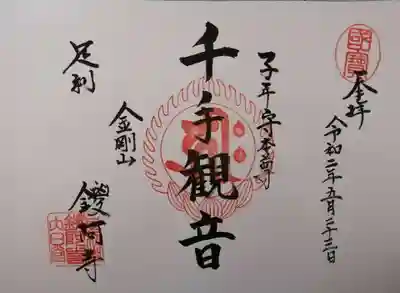 奉拝
令和二年五月二十三日
子年守本尊
千手観音
金剛山
足利
鑁阿寺
國寳